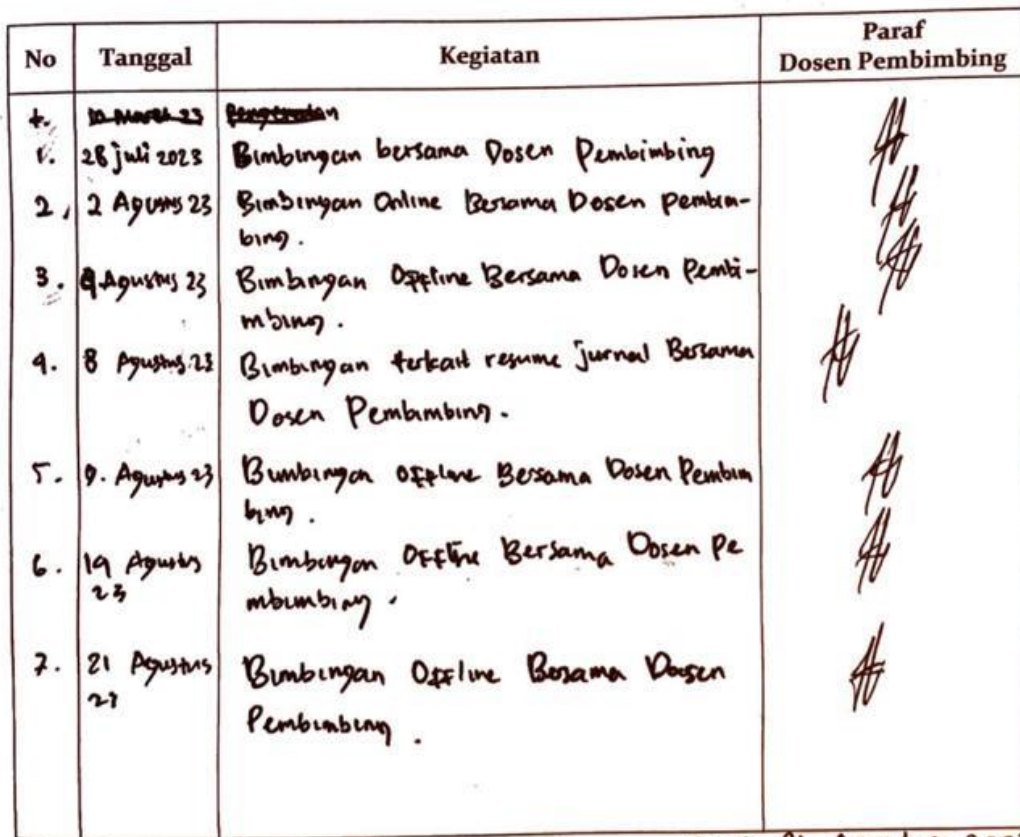 No Tanggal Kegiatan Paraf
Dosen Pembimbing
1. 28 juli 2023 Bimbingan bersama Dosen Pembimbing
2. 2 Agustus 23 Bimbingan Online Bersama Dosen pembim-
bing.
3. Agustus 23 Bimbingan Offline Bersama Dosen Pembi-
mbing.
4. 8 Agustus 23 Bimbingan terkait resume jurnal Bersama
Dosen Pembimbing.
5. 9. Agustus 23 Bimbingan offline Bersama Dosen Pembim
bing.
6. Agustus Bimbingan Offline Bersama Dosen Pe
23 mbimbing.
7. 21 Agustus Bimbingan Offline Bersama Dosen
23 Pembimbing.